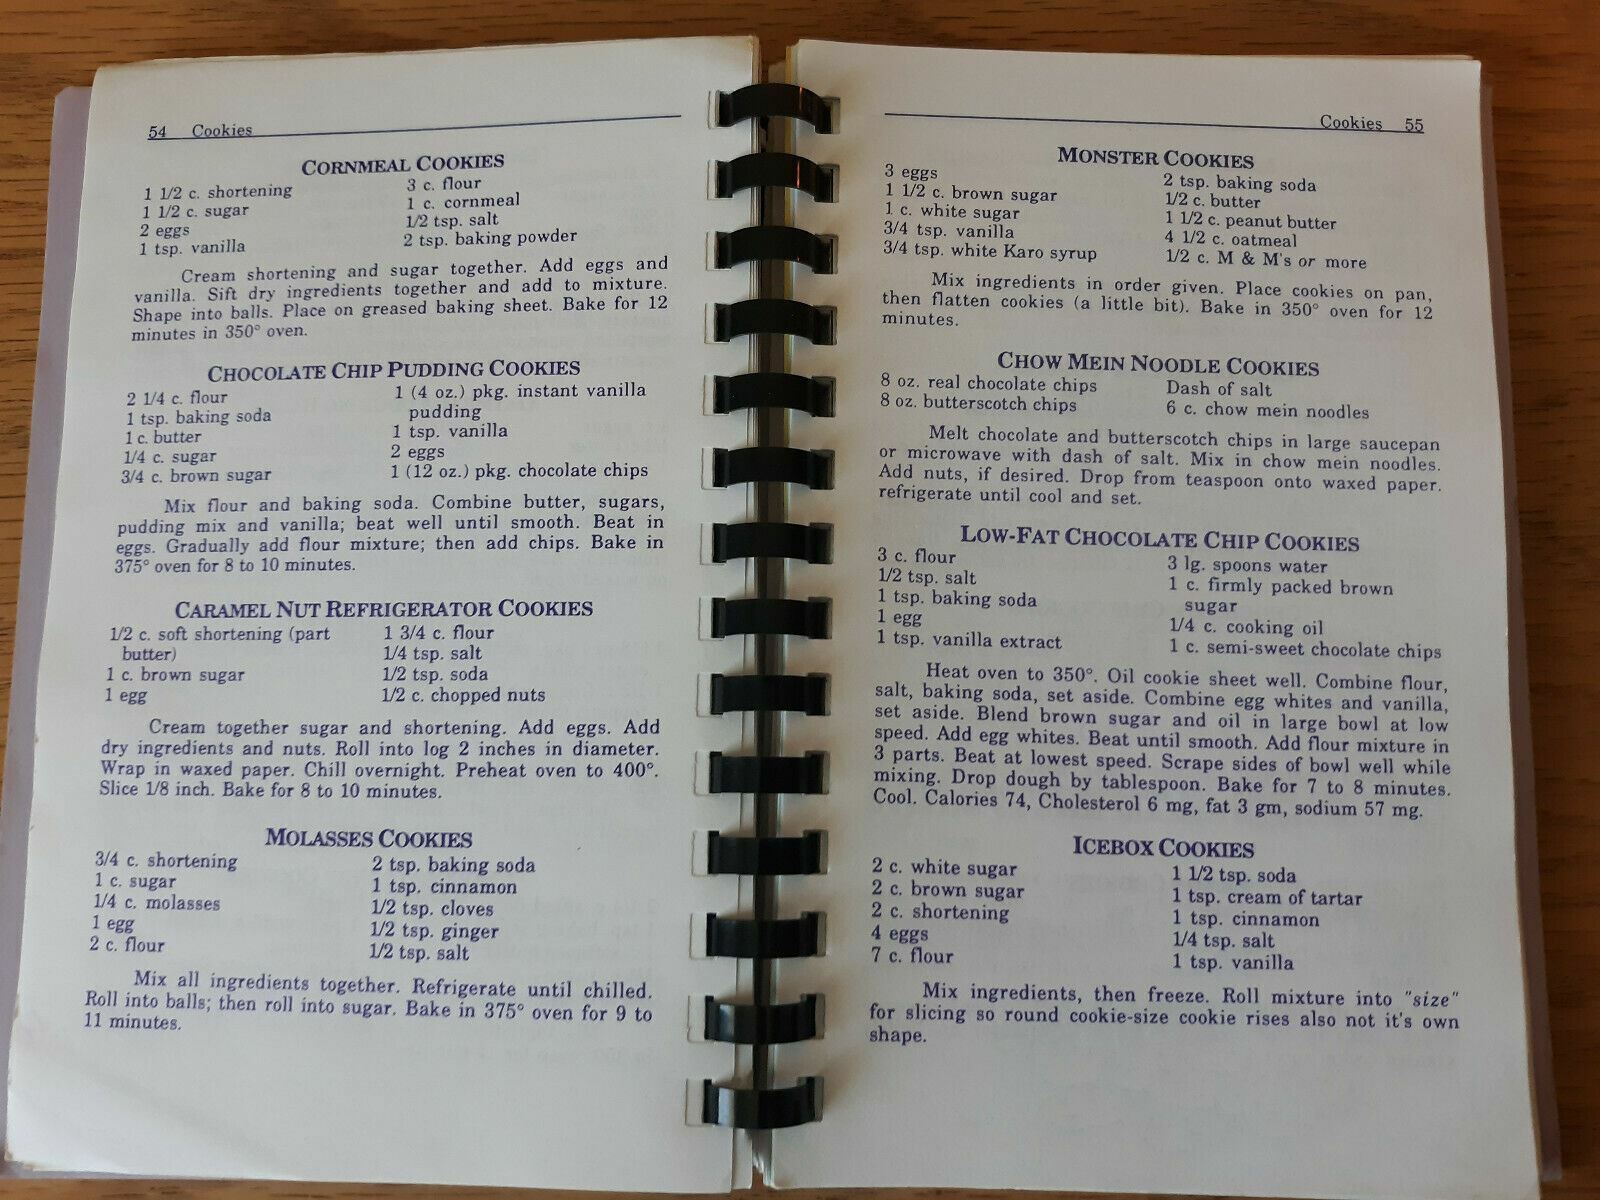 54 Cookies
CORNMEAL COOKIES
1 1/2 c. shortening
1 1/2 c. sugar
2 eggs
1 tsp. vanilla
3 c. flour
1 c. cornmeal
1/2 tsp. salt
2 tsp. baking powder
Cream shortening and sugar together. Add eggs and
vanilla. Sift dry ingredients together and add to mixture.
Shape into balls. Place on greased baking sheet. Bake for 12
minutes in 350° oven.
CHOCOLATE CHIP PUDDING COOKIES
2 1/4 c. flour
1 tsp. baking soda
1 c. butter
1/4 c. sugar
3/4 c. brown sugar
1 (4 oz.) pkg. instant vanilla
pudding
1 tsp. vanilla
2 eggs
1 (12 oz.) pkg. chocolate chips
Mix flour and baking soda. Combine butter, sugars,
pudding mix and vanilla; beat well until smooth. Beat in
eggs. Gradually add flour mixture; then add chips. Bake in
375° oven for 8 to 10 minutes.
CARAMEL NUT REFRIGERATOR COOKIES
1/2 c. soft shortening (part
butter)
1 c. brown sugar
1 egg
1 3/4 c. flour
1/4 tsp. salt
1/2 tsp. soda
1/2 c. chopped nuts
Cream together sugar and shortening. Add eggs. Add
dry ingredients and nuts. Roll into log 2 inches in diameter.
Wrap in waxed paper. Chill overnight. Preheat oven to 400°.
Slice 1/8 inch. Bake for 8 to 10 minutes.
MOLASSES COOKIES
3/4 c. shortening
1 c. sugar
1/4 c. molasses
1 egg
2 c. flour
2 tsp. baking soda
1 tsp. cinnamon
1/2 tsp. cloves
1/2 tsp. ginger
1/2 tsp. salt
Mix all ingredients together. Refrigerate until chilled.
Roll into balls; then roll into sugar. Bake in 375° oven for 9 to
11 minutes.
Cookies 55
MONSTER COOKIES
3 eggs
1 1/2 c. brown sugar
1 c. white sugar
3/4 tsp. vanilla
3/4 tsp. white Karo syrup
2 tsp. baking soda
1/2 c. butter
1 1/2 c. peanut butter
4 1/2 c. oatmeal
1/2 c. M & M's or more
Mix ingredients in order given. Place cookies on pan,
then flatten cookies (a little bit). Bake in 350° oven for 12
minutes.
CHOW MEIN NOODLE COOKIES
8 oz. real chocolate chips
8 oz. butterscotch chips
Dash of salt
6 c. chow mein noodles
Melt chocolate and butterscotch chips in large saucepan
or microwave with dash of salt. Mix in chow mein noodles.
Add nuts, if desired. Drop from teaspoon onto waxed paper.
refrigerate until cool and set.
LOW-FAT CHOCOLATE CHIP COOKIES
3 c. flour
1/2 tsp. salt
1 tsp. baking soda
1 egg
1 tsp. vanilla extract
3 lg. spoons water
1 c. firmly packed brown
sugar
1/4 c. cooking oil
1 c. semi-sweet chocolate chips
Heat oven to 350°. Oil cookie sheet well. Combine flour,
salt, baking soda, set aside. Combine egg whites and vanilla,
set aside. Blend brown sugar and oil in large bowl at low
speed. Add egg whites. Beat until smooth. Add flour mixture in
3 parts. Beat at lowest speed. Scrape sides of bowl well while
mixing. Drop dough by tablespoon. Bake for 7 to 8 minutes.
Cool. Calories 74, Cholesterol 6 mg, fat 3 gm, sodium 57 mg.
ICEBOX COOKIES
2 c. white sugar
2 c. brown sugar
2 c. shortening
4 eggs
7 c. flour
1 1/2 tsp. soda
1 tsp. cream of tartar
1 tsp. cinnamon
1/4 tsp. salt
1 tsp. vanilla
Mix ingredients, then freeze. Roll mixture into "size"
for slicing so round cookie-size cookie rises also not it's own
shape.